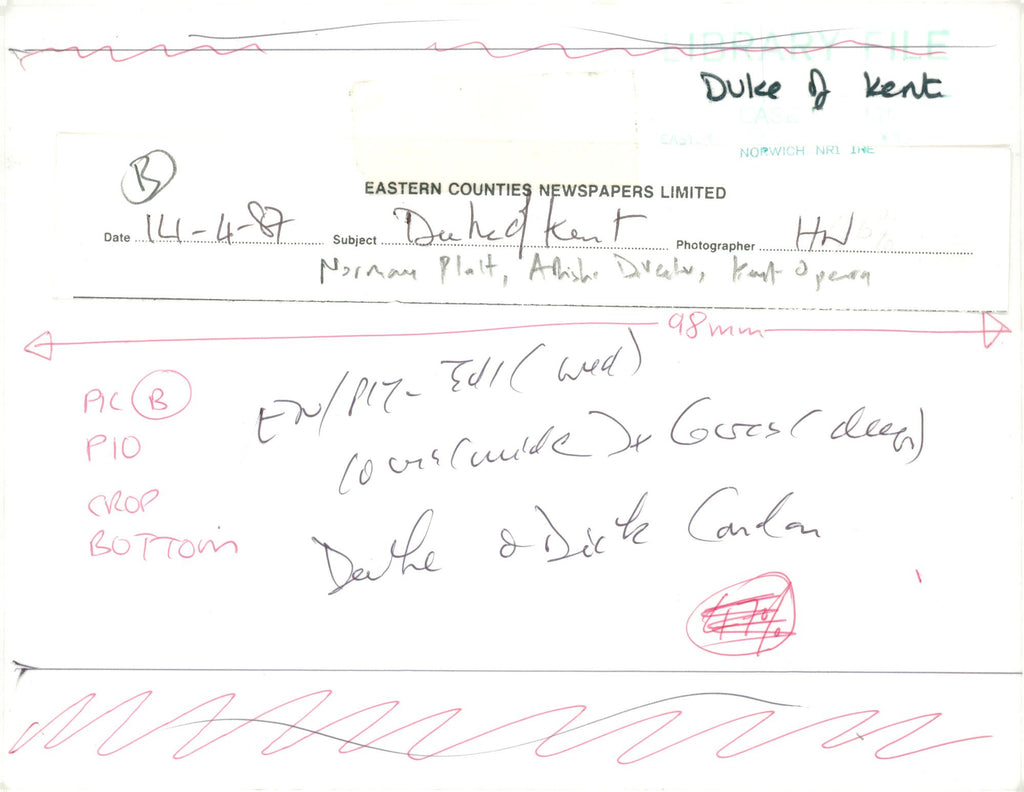 LIBRARY FILE
Duke of Kent
NORWICH NR1 1NE
B
EASTERN COUNTIES NEWSPAPERS LIMITED
Date 14-4-87 Subject Duke of Kent Photographer HW
Norman Platt, Director, Kent Opera
98mm
PIC B
P10
CROP
BOTTOM
(wed)
(wide) x 6 cms (deep)
Duke & Dick Condon